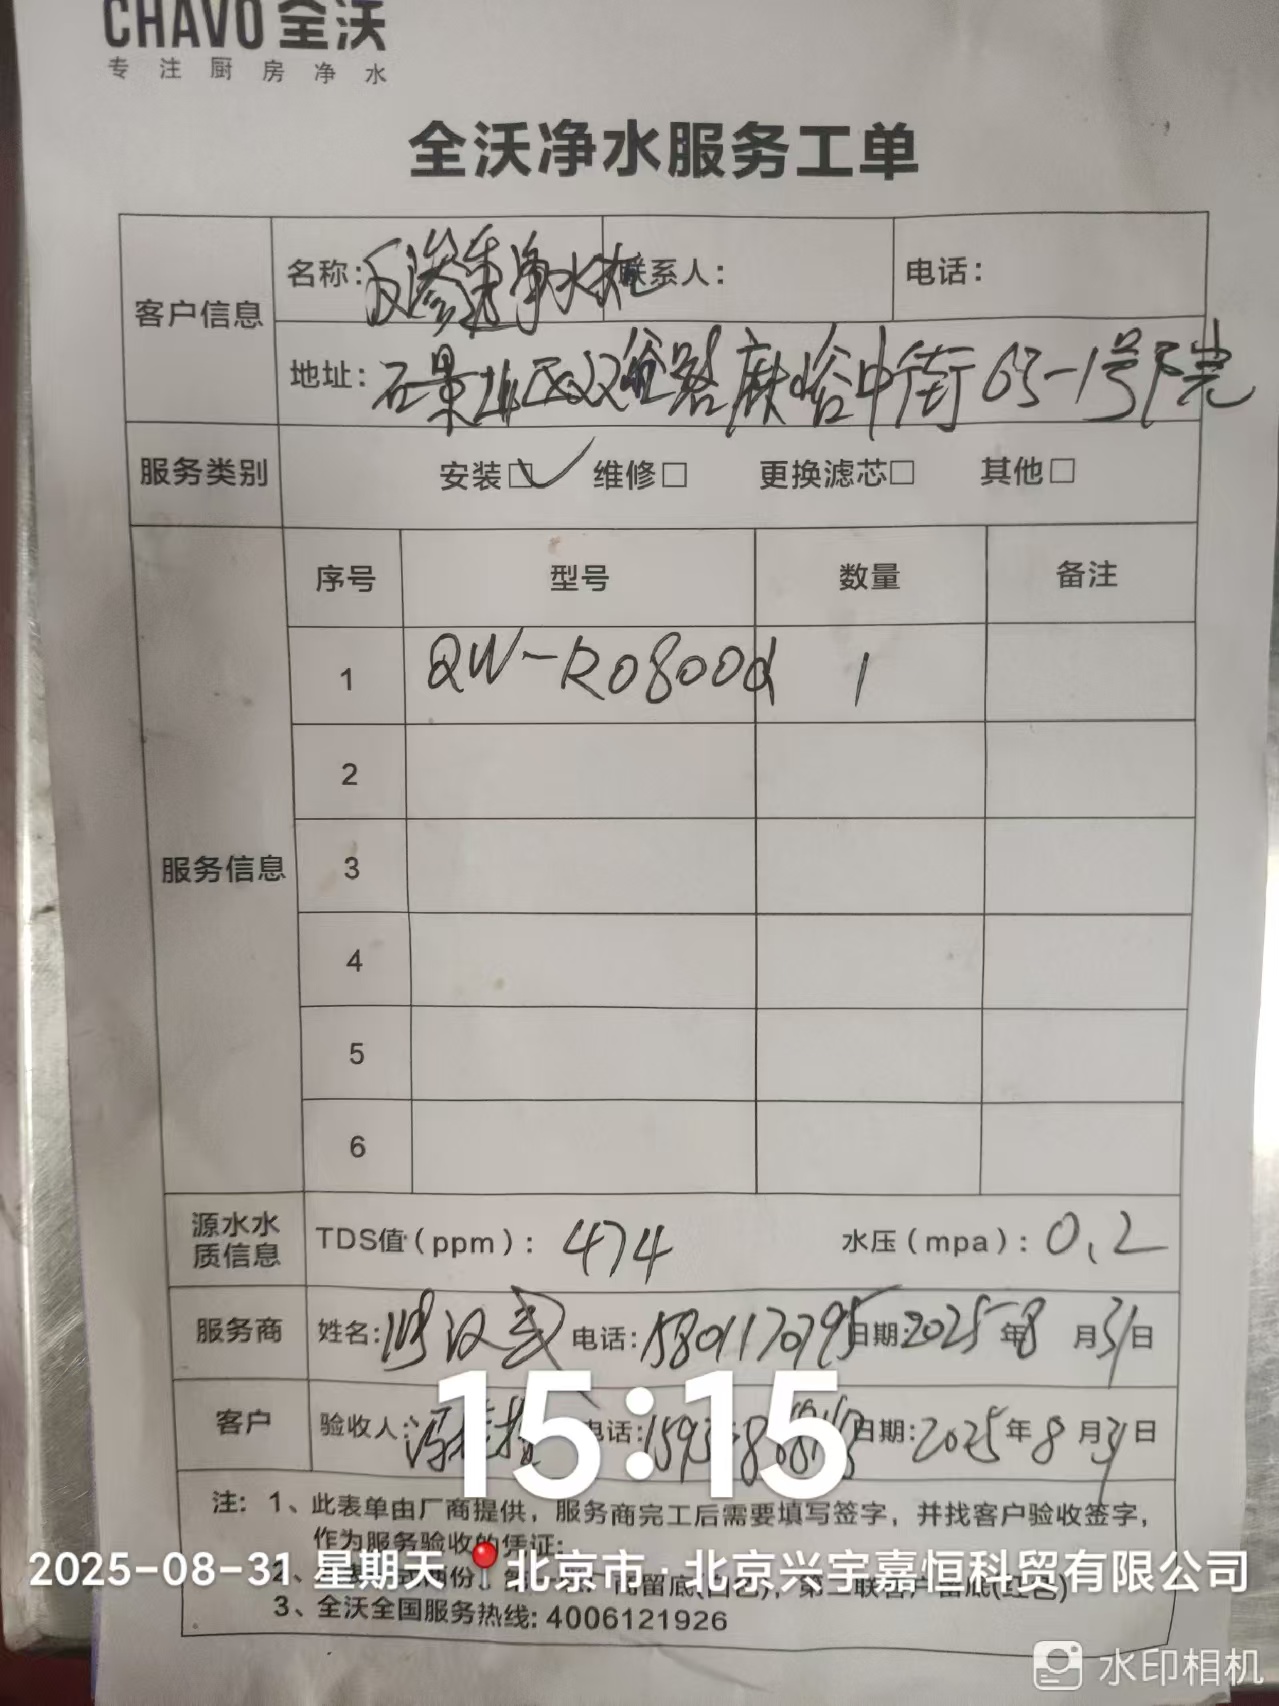 CHAVO 全沃
专注厨房净水
全沃净水服务工单
客户信息 名称：反渗透净水机 联系人： 电话：
地址：石景山区双峪路麻峪中街63-1号
服务类别 安装☑ 维修□ 更换滤芯□ 其他□
服务信息 序号 型号 数量 备注
1 QW-RO800d 1
2
3
4
5
6
源水水质信息 TDS值（ppm）：474 水压（mpa）：0.2
服务商 姓名: 汉武 电话:15801170795 日期:2025年8月31日
客户 验收人: 电话: 日期:2025年8月31日
15:15
注：1、此表单由厂商提供，服务商完工后需要填写签字，并找客户验收签字，
作为服务验收的凭证;
2025-08-31 星期天 北京市·北京兴宇嘉恒科贸有限公司
2、
3、全沃全国服务热线: 4006121926
水印相机